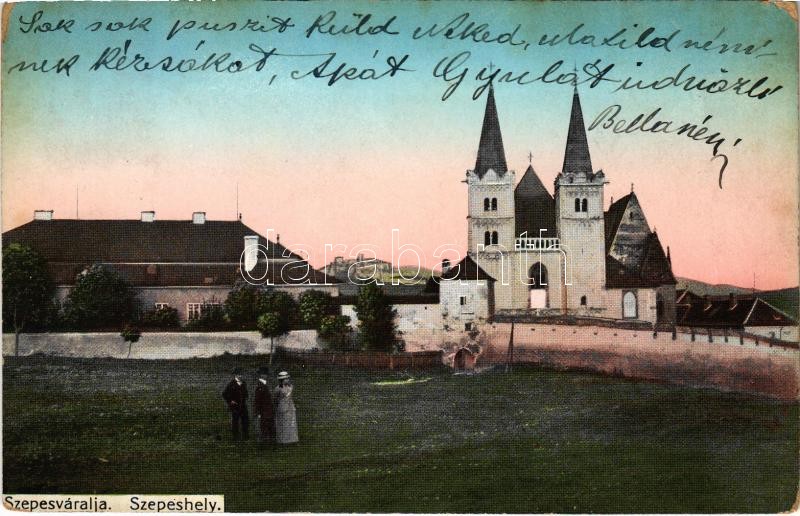 Sok sok puszit küld Neked, Matild néni
nek kézcsókot, Apát Gyulát üdvözli
Bellanéni
darabanth
Szepesváralja. Szepeshely.